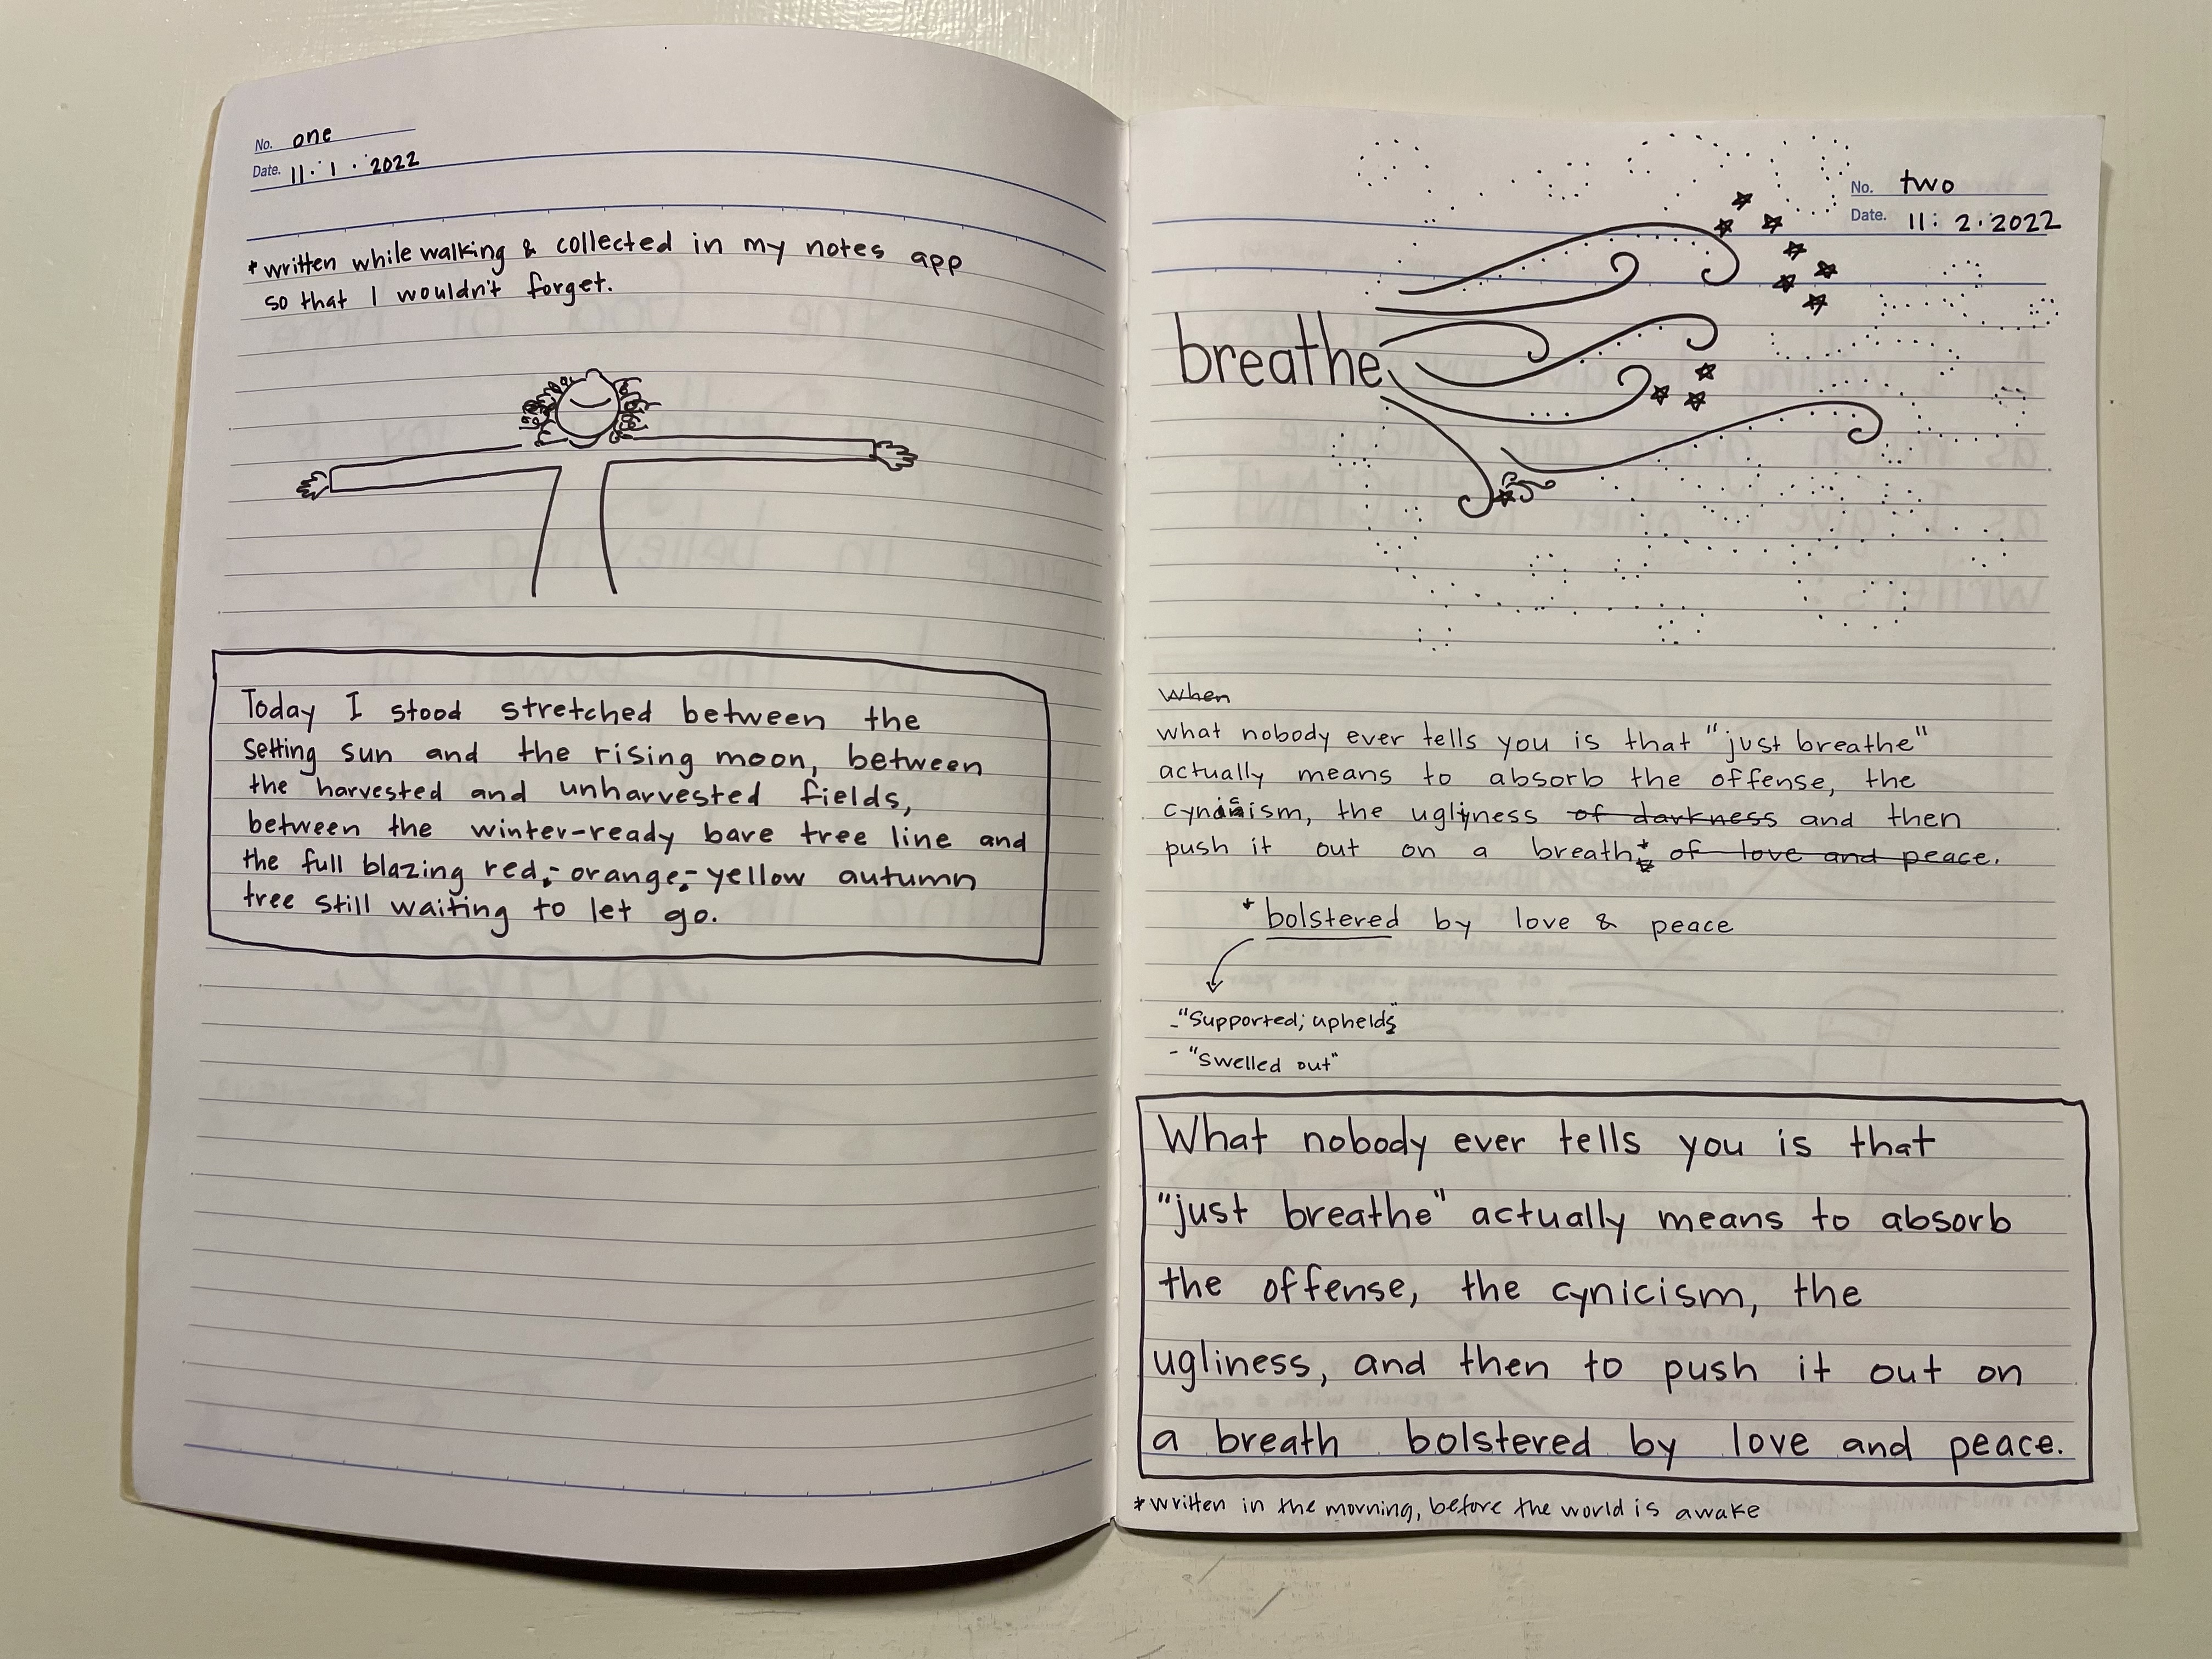 No. one
Date. 11 · 1 · 2022
*written while walking & collected in my notes app
so that I wouldn't forget.
Today I stood stretched between the
setting sun and the rising moon, between
the harvested and unharvested fields,
between the winter-ready bare tree line and
the full blazing red,-orange,-yellow autumn
tree still waiting to let go.
No. two
Date. 11: 2.2022
breathe
When
what nobody ever tells you is that "just breathe"
actually means to absorb the offense, the
cynicism, the ugliness of darkness and then
push it out on a breath* of love and peace.
* bolstered by love & peace
- "Supported; upheld"
- "Swelled out"
What nobody ever tells you is that
"just breathe" actually means to absorb
the offense, the cynicism, the
ugliness, and then to push it out on
a breath bolstered by love and peace.
*written in the morning, before the world is awake